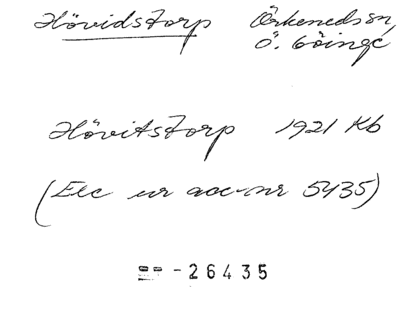 Hövidstorp Örkeneds sn,
Ö. Göinge
Hövitstorp 1921 Kb
(Exc ur acc-nr 5435)
-26435